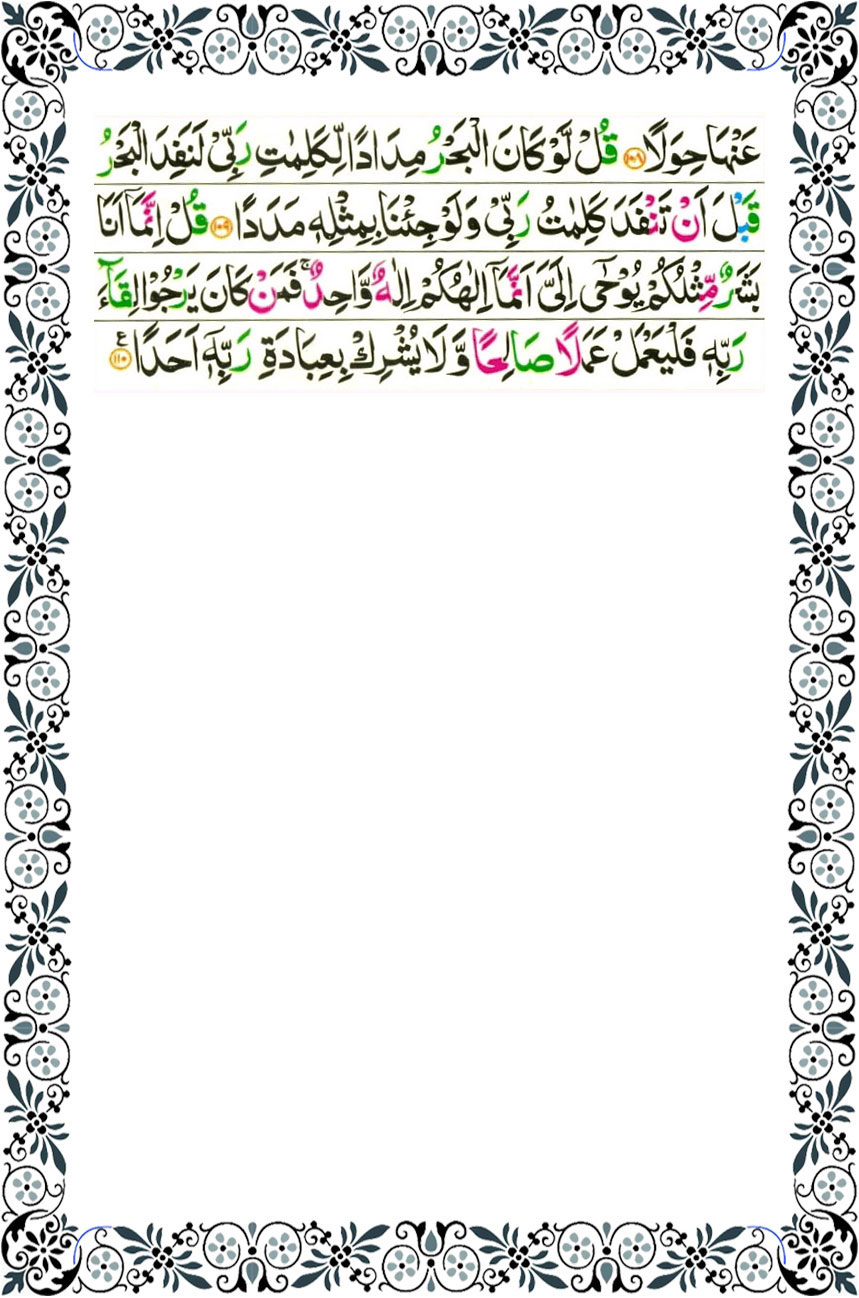 عَنْهَا حِوَلًا ۝١٠٨ قُلْ لَّوْ كَانَ الْبَحْرُ مِدَادًا لِّكَلِمٰتِ رَبِّیْ لَنَفِدَ الْبَحْرُ
قَبْلَ اَنْ تَنْفَدَ كَلِمٰتُ رَبِّیْ وَلَوْ جِئْنَا بِمِثْلِهٖ مَدَدًا ۝١٠٩ قُلْ اِنَّمَاۤ اَنَا
بَشَرٌ مِّثْلُكُمْ یُوْحٰۤی اِلَیَّ اَنَّمَاۤ اِلٰهُكُمْ اِلٰهٌ وَّاحِدٌ ۚ فَمَنْ كَانَ یَرْجُوْا لِقَآءَ
رَبِّهٖ فَلْیَعْمَلْ عَمَلًا صَالِحًا وَّلَا یُشْرِكْ بِعِبَادَةِ رَبِّهٖۤ اَحَدًا ۝١١٠ ع